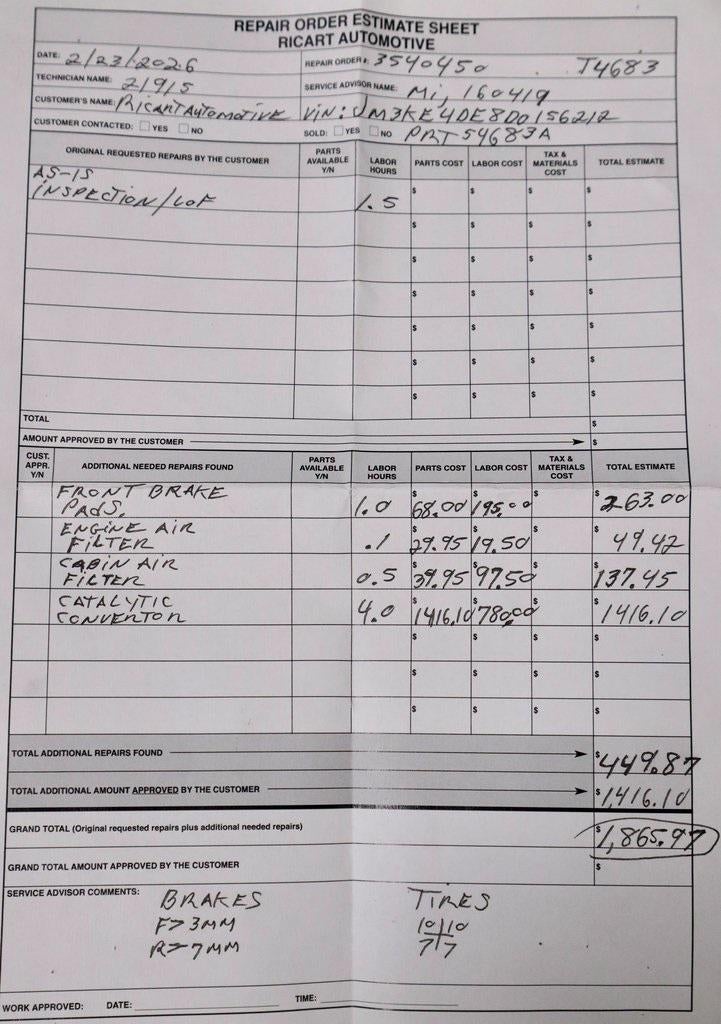 REPAIR ORDER ESTIMATE SHEET
RICART AUTOMOTIVE
DATE: 2/23/2026 REPAIR ORDER #: 3540450 T4683
TECHNICIAN NAME: 21915 SERVICE ADVISOR NAME: Mi, 160419
CUSTOMER'S NAME: RICART AUTOMOTIVE VIN: JM3KE4DE8D0156212
CUSTOMER CONTACTED: YES NO SOLD: YES NO PRT54683A
ORIGINAL REQUESTED REPAIRS BY THE CUSTOMER PARTS AVAILABLE Y/N LABOR HOURS PARTS COST LABOR COST TAX & MATERIALS COST TOTAL ESTIMATE
AS-IS
INSPECTION/LOF 1.5 $ $ $ $
$ $ $ $
$ $ $ $
$ $ $ $
$ $ $ $
$ $ $ $
$ $ $ $
TOTAL $
AMOUNT APPROVED BY THE CUSTOMER $
CUST. APPR. Y/N ADDITIONAL NEEDED REPAIRS FOUND PARTS AVAILABLE Y/N LABOR HOURS PARTS COST LABOR COST TAX & MATERIALS COST TOTAL ESTIMATE
FRONT BRAKE
PADS. 1.0 $68.00 $195.00 $ $263.00
ENGINE AIR
FILTER .1 $29.95 $19.50 $ $49.42
CABIN AIR
FILTER 0.5 $39.95 $97.50 $ $137.45
CATALYTIC
CONVERTOR 4.0 $1416.10 $780.00 $ $1416.10
$ $ $ $
$ $ $ $
$ $ $ $
TOTAL ADDITIONAL REPAIRS FOUND $449.87
TOTAL ADDITIONAL AMOUNT APPROVED BY THE CUSTOMER $1,416.10
GRAND TOTAL (Original requested repairs plus additional needed repairs) $1,865.97
GRAND TOTAL AMOUNT APPROVED BY THE CUSTOMER $
SERVICE ADVISOR COMMENTS: BRAKES TIRES
F> 3MM 10|10
R> 7MM 7|7
WORK APPROVED: DATE: TIME: